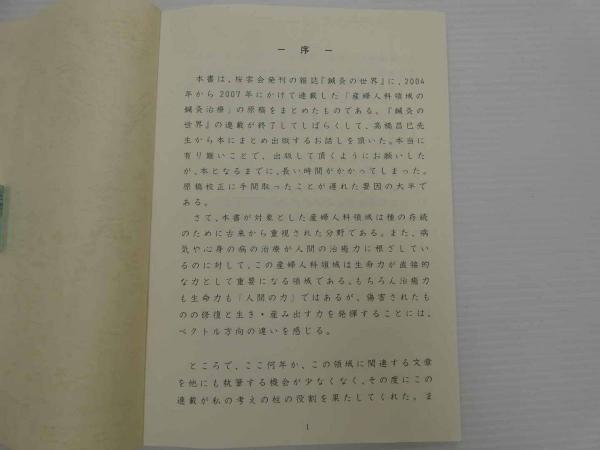 － 序 －
本書は、桜雲会発刊の雑誌『鍼灸の世界』に、2004
年から2007年にかけて連載した「産婦人科領域の
鍼灸治療」の原稿をまとめたものである。『鍼灸の
世界』の連載が終了してしばらくして、高橋昌巳先
生から本にまとめ出版するお話しを頂いた。本当に
有り難いことで、出版して頂くようにお願いした
が、本となるまでに、長い時間がかかってしまった。
原稿校正に手間取ったことが遅れた要因の大半で
ある。
さて、本書が対象とした産婦人科領域は種の存続
のために古来から重視された分野である。また、病
気や心身の病の治療が人間の治癒力に根ざしてい
るのに対して、この産婦人科領域は生命力が直接的
な力として重要になる領域である。もちろん治癒力
も生命力も「人間の力」ではあるが、傷害されたも
のの修復と生き・産み出す力を発揮することには、
ベクトル方向の違いを感じる。
ところで、ここ何年か、この領域に関連する文章
を他にも執筆する機会が少なくなく、その度にこの
連載が私の考えの柱の役割を果たしてくれた。ま
1